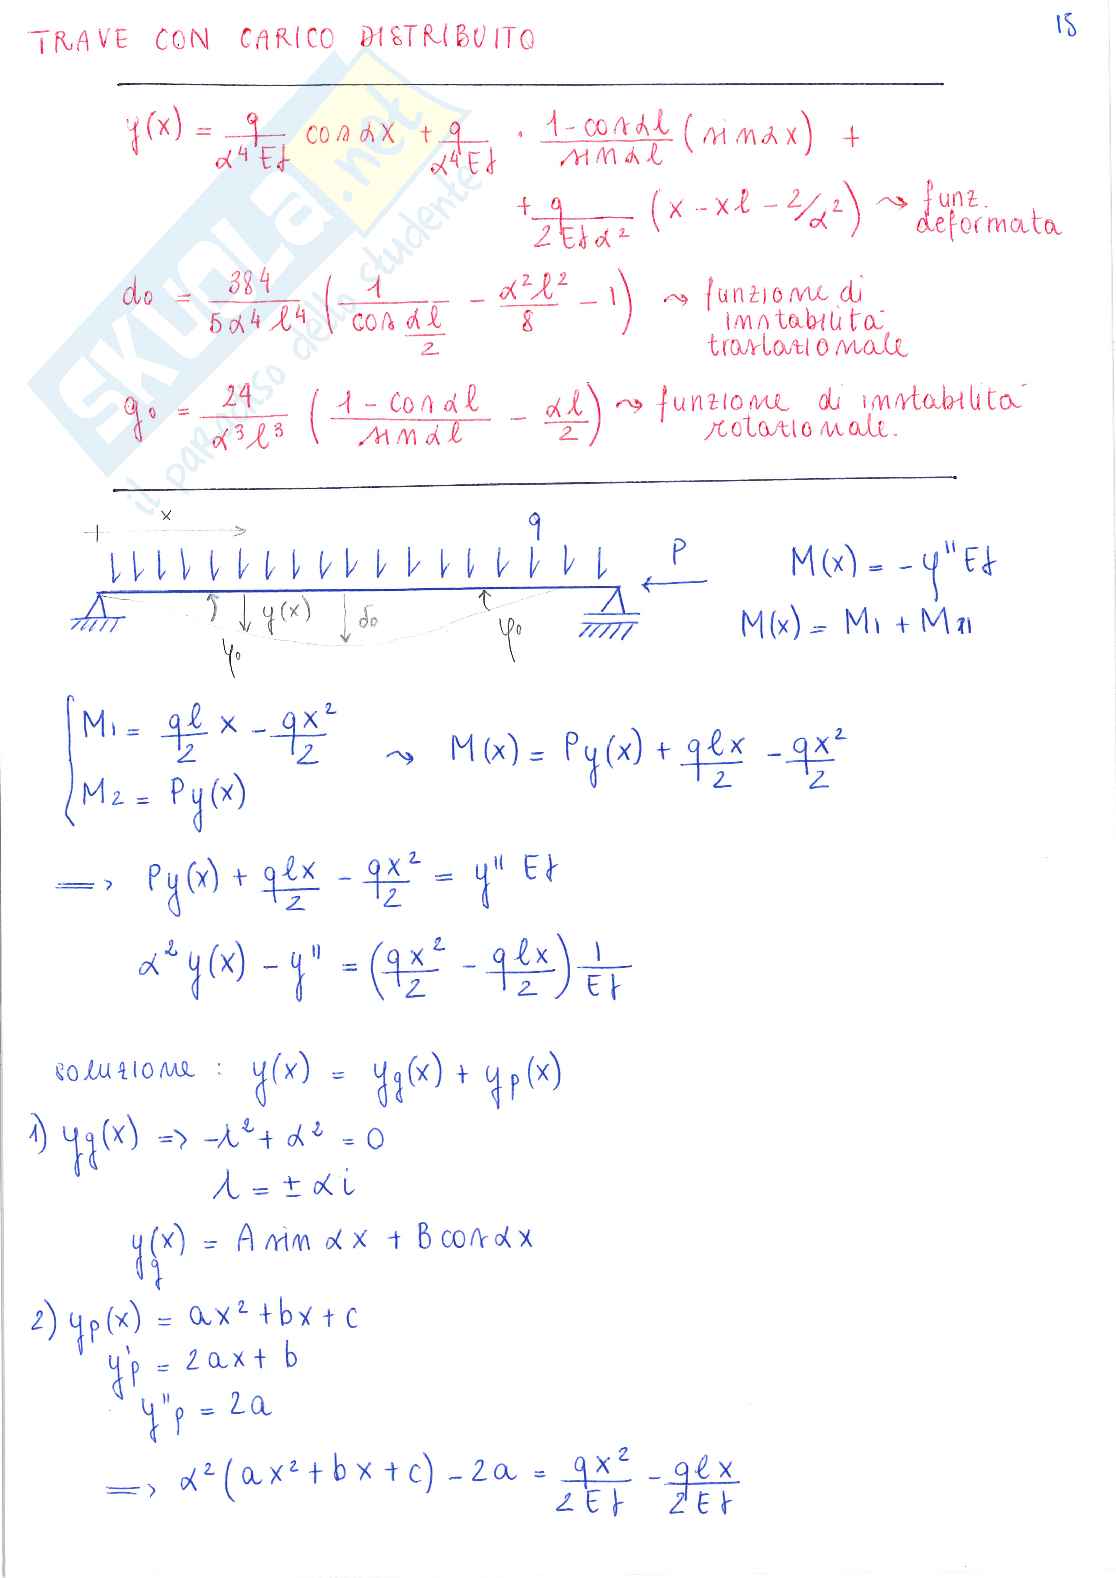 TRAVE CON CARICO DISTRIBUITO
15
y(x) = q/(α⁴EJ) cos αx + q/(α⁴EJ) · (1 - cos αl)/(sin αl) (sin αx) +
+ q/(2EJα²) (x - xl - 2/α²) ⇝ funz. deformata
do = 384/(5α⁴l⁴) (1/(cos αl/2) - α²l²/8 - 1) ⇝ funzione di instabilità traslazionale
go = 24/(α³l³) ((1 - cos αl)/(sin αl) - αl/2) ⇝ funzione di instabilità rotazionale.
SKUOLA.net
il paradiso dello studente
x
q
P
y(x)
δo
φo
φo
M(x) = - y'' EJ
M(x) = M1 + MII
M1 = ql/2 x - qx²/2
M2 = Py(x)
⇝ M(x) = Py(x) + qlx/2 - qx²/2
=> Py(x) + qlx/2 - qx²/2 = y'' EJ
α² y(x) - y'' = (qx²/2 - qlx/2) 1/EJ
soluzione : y(x) = yg(x) + yp(x)
1) yg(x) => -λ² + α² = 0
λ = ± αi
yg(x) = A sin αx + B cos αx
2) yp(x) = ax² + bx + c
y'p = 2ax + b
y''p = 2a
=> α² (ax² + bx + c) - 2a = qx²/2EJ - qlx/2EJ